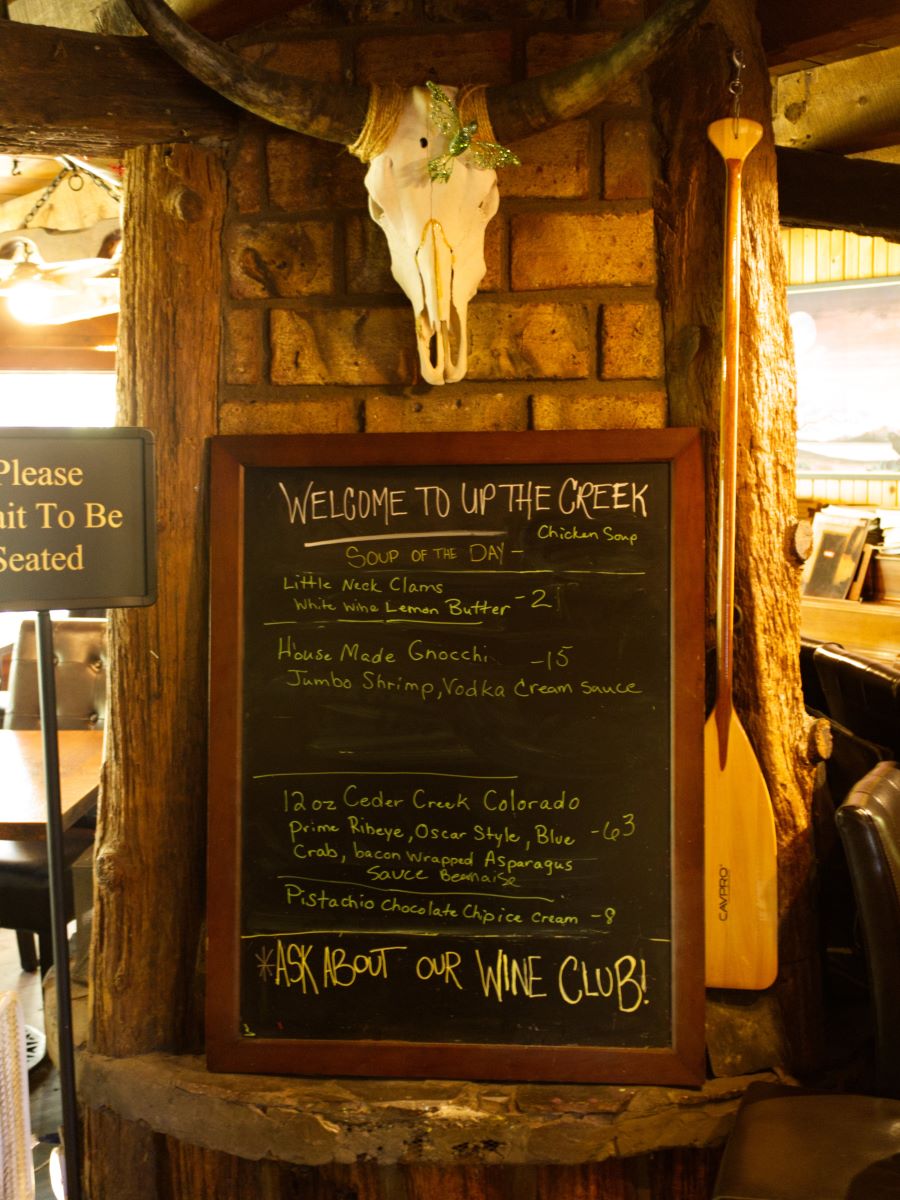 Please
ait To Be
Seated
WELCOME TO UP THE CREEK
Chicken Soup
SOUP OF THE DAY -
Little Neck Clams
White Wine Lemon Butter
House Made Gnocchi -15
Jumbo Shrimp, Vodka Cream Sauce
12oz Ceder Creek Colorado
Prime Ribeye, Oscar Style, Blue -63
Crab, bacon wrapped Asparagus
Sauce
Pistachio Chocolate Chip ice cream -8
*ASK ABOUT OUR WINE CLUB!
CAVPRO